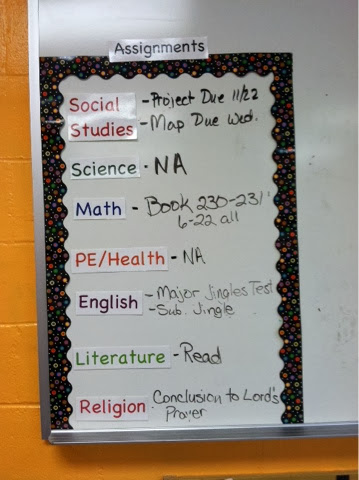 Assignments
Social - Project Due 11/22
Studies - Map Due Wed.
Science - NA
Math - Book 230-231
6-22 all
PE/Health - NA
English - Major Jingles Test
- Sub. Jingle
Literature - Read
Religion - Conclusion to Lord's
Prayer